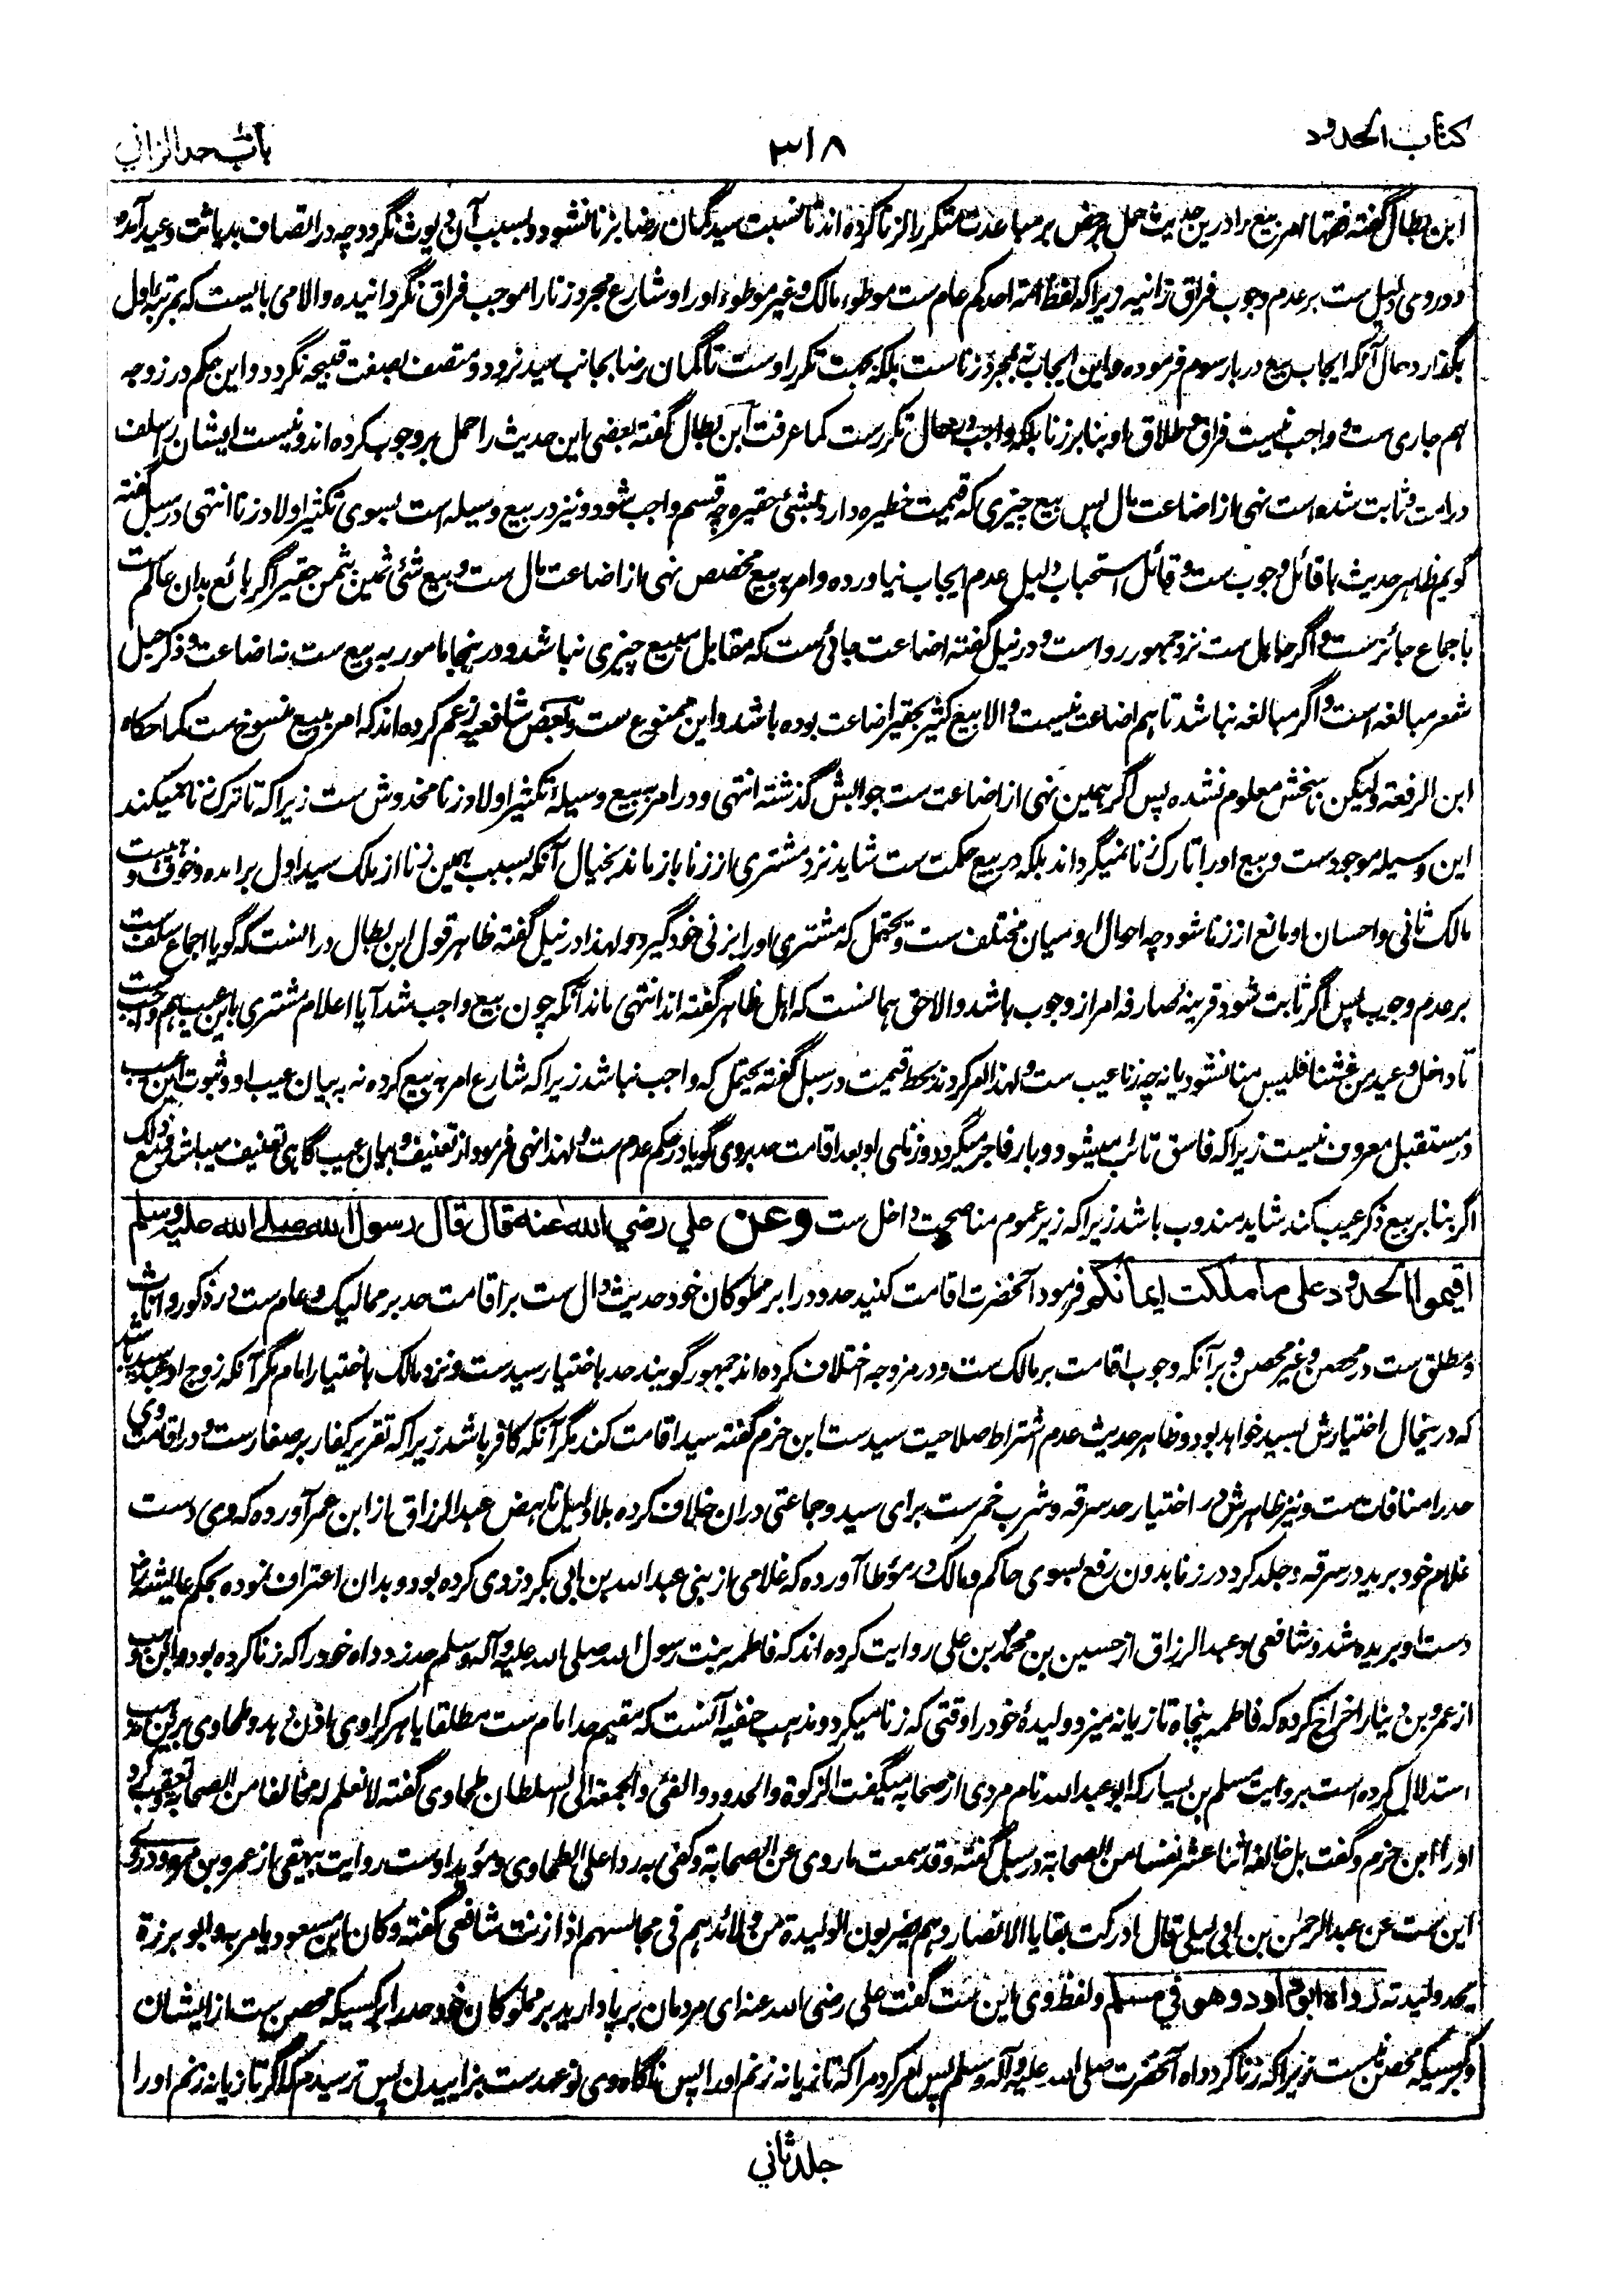 كتاب الحدود
٣١٨
باب حد الزاني
ابن بطال گفته فقها امر بیع را درین حدیث حمل بر حض بر مباعدت متکرر الزنا کرده‌اند تا نسبت سید گمان رضا بزنا نشود و بسبب آن دیوث نگردد چه در اتصاف بدیاثت وعید آمده
و در وی دلیل ست بر عدم وجوب فراق زانیه زیرا که لفظ امة احدکم عام ست موطوءه مالک و غیر موطوءه او را و شارع مجرد زنا را موجب فراق نگردانیده و الا می بایست که بمرتبه اول
بگذارد حال آنکه ایجاب بیع در بار سوم فرموده و این ایجاب نه بمجرد زناست بلکه بجهت تکرر اوست تا گمان رضا بجانب سید نرود و متصف بصفت قبیحه نگردد و این حکم در زوجه
هم جاری ست و واجب نیست فراق و طلاق او بنا بر زنا بلکه واجب در حال تکررست کما عرفت ابن بطال گفته بعضی این حدیث را حمل بر وجوب کرده‌اند و نیست ایشان را سلف
در امت و ثابت شده است نهی از اضاعت مال پس بیع چیزی که قیمت خطیره دارد بشئی حقیر چه قسم واجب شود و نیز در بیع وسیله است بسوی تکثیر اولاد زنا انتهی در سبل گفته
گویم ظاهر حدیث با قائل وجوب ست و قائل استحباب دلیل عدم ایجاب نیاورده و امر به بیع مخصص نهی از اضاعت مال ست و بیع شئی ثمین بثمن حقیر اگر بائع بدان عالم ست
باجماع جائزست و اگر جاهل ست نزد جمهور رواست و در نیل گفته اضاعت جائی ست که مقابل مبیع چیزی نباشد و در ینجا مامور به بیع ست نه اضاعت و ذکر حبل
شعر مبالغه است و اگر مبالغه نباشد تا هم اضاعت نیست و الا بیع کثیر بحقیر اضاعت بوده باشد و این ممنوع ست و بعض شافعیه زعم کرده‌اند که امر ببیع منسوخ ست کما حکاه
ابن الرفعة ولیکن ناسخش معلوم نشده پس اگر همین نهی از اضاعت ست جوابش گذشته انتهی و در امر ببیع وسیله تکثیر اولاد زنا مخدوش ست زیرا که تا ترک زنا نمیکند
این وسیله موجودست و بیع او را تارک زنا نمیگرداند بلکه در بیع حکمت ست شاید نزد مشتری از زنا باز ماند بخیال آنکه بسبب همین زنا از ملک سید اول برامده و خوف و هیبت
مالک ثانی و احسان او مانع از زنا شود چه احوال اوسیان مختلف ست و یحتمل که مشتری او را بزنی خود گیرد و لهذا در نیل گفته ظاهر قول ابن بطال در انست که گویا اجماع سلف ست
بر عدم وجوب پس اگر ثابت شود قرینه صارفه امر از وجوب باشد و الا حق همانست که اهل ظاهر گفته‌اند انتهی ماند آنکه چون بیع واجب شد آیا اعلام مشتری باین عیب هم واجب ست
تا داخل وعید من غشنا فلیس منا نشود یا نه چه زنا عیب ست و لهذا امر کردند بحط قیمت در سبل گفته یحتمل که واجب نباشد زیرا که شارع امر به بیع کرده نه به بیان عیب او و ثبوت این عیب
در مستقبل معروف نیست زیرا که فاسق تائب میشود و بار فاجر میگردد و زنای او بعد اقامت حد بروی گویا در حکم عدم ست و لهذا نهی فرمود از تعنیف و بیان عیب گاهی تعنیف میباشد و مع ذلک
اگر بنا بر بیع ذکر عیب کند شاید مندوب باشد زیرا که زیر عموم مناصحت داخل ست وعن علي رضي الله عنه قال قال رسول الله صلى الله عليه وسلم
اقيموا الحدود على ما ملكت ايمانكم فرمود آنحضرت اقامت کنید حدود را بر مملوکان خود حدیث دال ست بر اقامت حد بر ممالیک و عام ست در ذکور و اناث
و مطلق ست در محصن و غیر محصن و بر آنکه وجوب اقامت بر مالک ست و در مزوجه اختلاف کرده‌اند جمهور گویند حد باختیار سیدست و نزد مالک باختیار امام مگر آنکه زوج او عبد سید باشد
که در ینحال اختیارش بسید خواهد بود و ظاهر حدیث عدم اشتراط صلاحیت سیدست ابن حزم گفته سید اقامت کند مگر آنکه کافر باشد زیرا که تقریر کفار بر صغارست و در اقامت وی
حد را منافات ست و نیز ظاهرش در اختیار حد سرقه و شرب خمرست برای سید و جماعتی دران خلاف کرده بلا دلیل ناهض عبدالرزاق از ابن عمر آورده که وی دست
غلام خود برید در سرقه و جلد کرد در زنا بدون رفع بسوی حاکم و مالک در مؤطا آورده که غلامی از بنی عبد الله بن ابی بکر دزدی کرده بود و بدان اعتراف نموده بحکم عایشه رض
دست او بریده شد و شافعی و عبدالرزاق از حسین بن محمد بن علی روایت کرده‌اند که فاطمه بنت رسول الله صلی الله علیه و آله وسلم حد زد داه خود را که زنا کرده بود و ابن وهب
از عمرو بن دینار اخراج کرده که فاطمه پنجاه تازیانه میزد ولیده خود را وقتی که زنا میکرد و مذهب حنفیه آنست که مقیم حد امام ست مطلقا یا هر کرا وی اذن دهد و طحاوی برین مذهب
استدلال کرده است بروایت مسلم بن یسار که ابو عبدالله نام مردی از صحابه میگفت الزکوة والحدود والفئ والجمعة الی السلطان طحاوی گفته لا نعلم له مخالفا من الصحابة و تعقب کرد
او را ابن حزم و گفت بل خالفه اثنا عشر نفسا من الصحابة در سبل گفته و قد سمعت ما روی عن الصحابة وکفی به ردا علی الطحاوی و مؤید اوست روایت بیهقی از عمرو بن مره و در وی
این ست عن عبدالرحمن بن ابی لیلی قال ادرکت بقایا الانصار وهم یضربون الولیدة من ولائدهم فی مجالسهم اذا زنت شافعی گفته وکان ابن مسعود یامر به و ابو برزة
یحد ولیدته رواه ابو داود وهو في مسلم و لفظ وی این ست گفت علی رضی الله عنه ای مردمان بر پا دارید بر مملوکان خود حد را بر کسیکه محصن ست از ایشان
و بر کسیکه محصن نیست زیرا که زنا کرد داه آنحضرت صلی الله علیه و آله وسلم پس امر کرد مرا که تازیانه زنم او را پس ناگاه وی نو عهدست بزاییدن پس ترسیدم که اگر تازیانه زنم او را
جلد ثاني